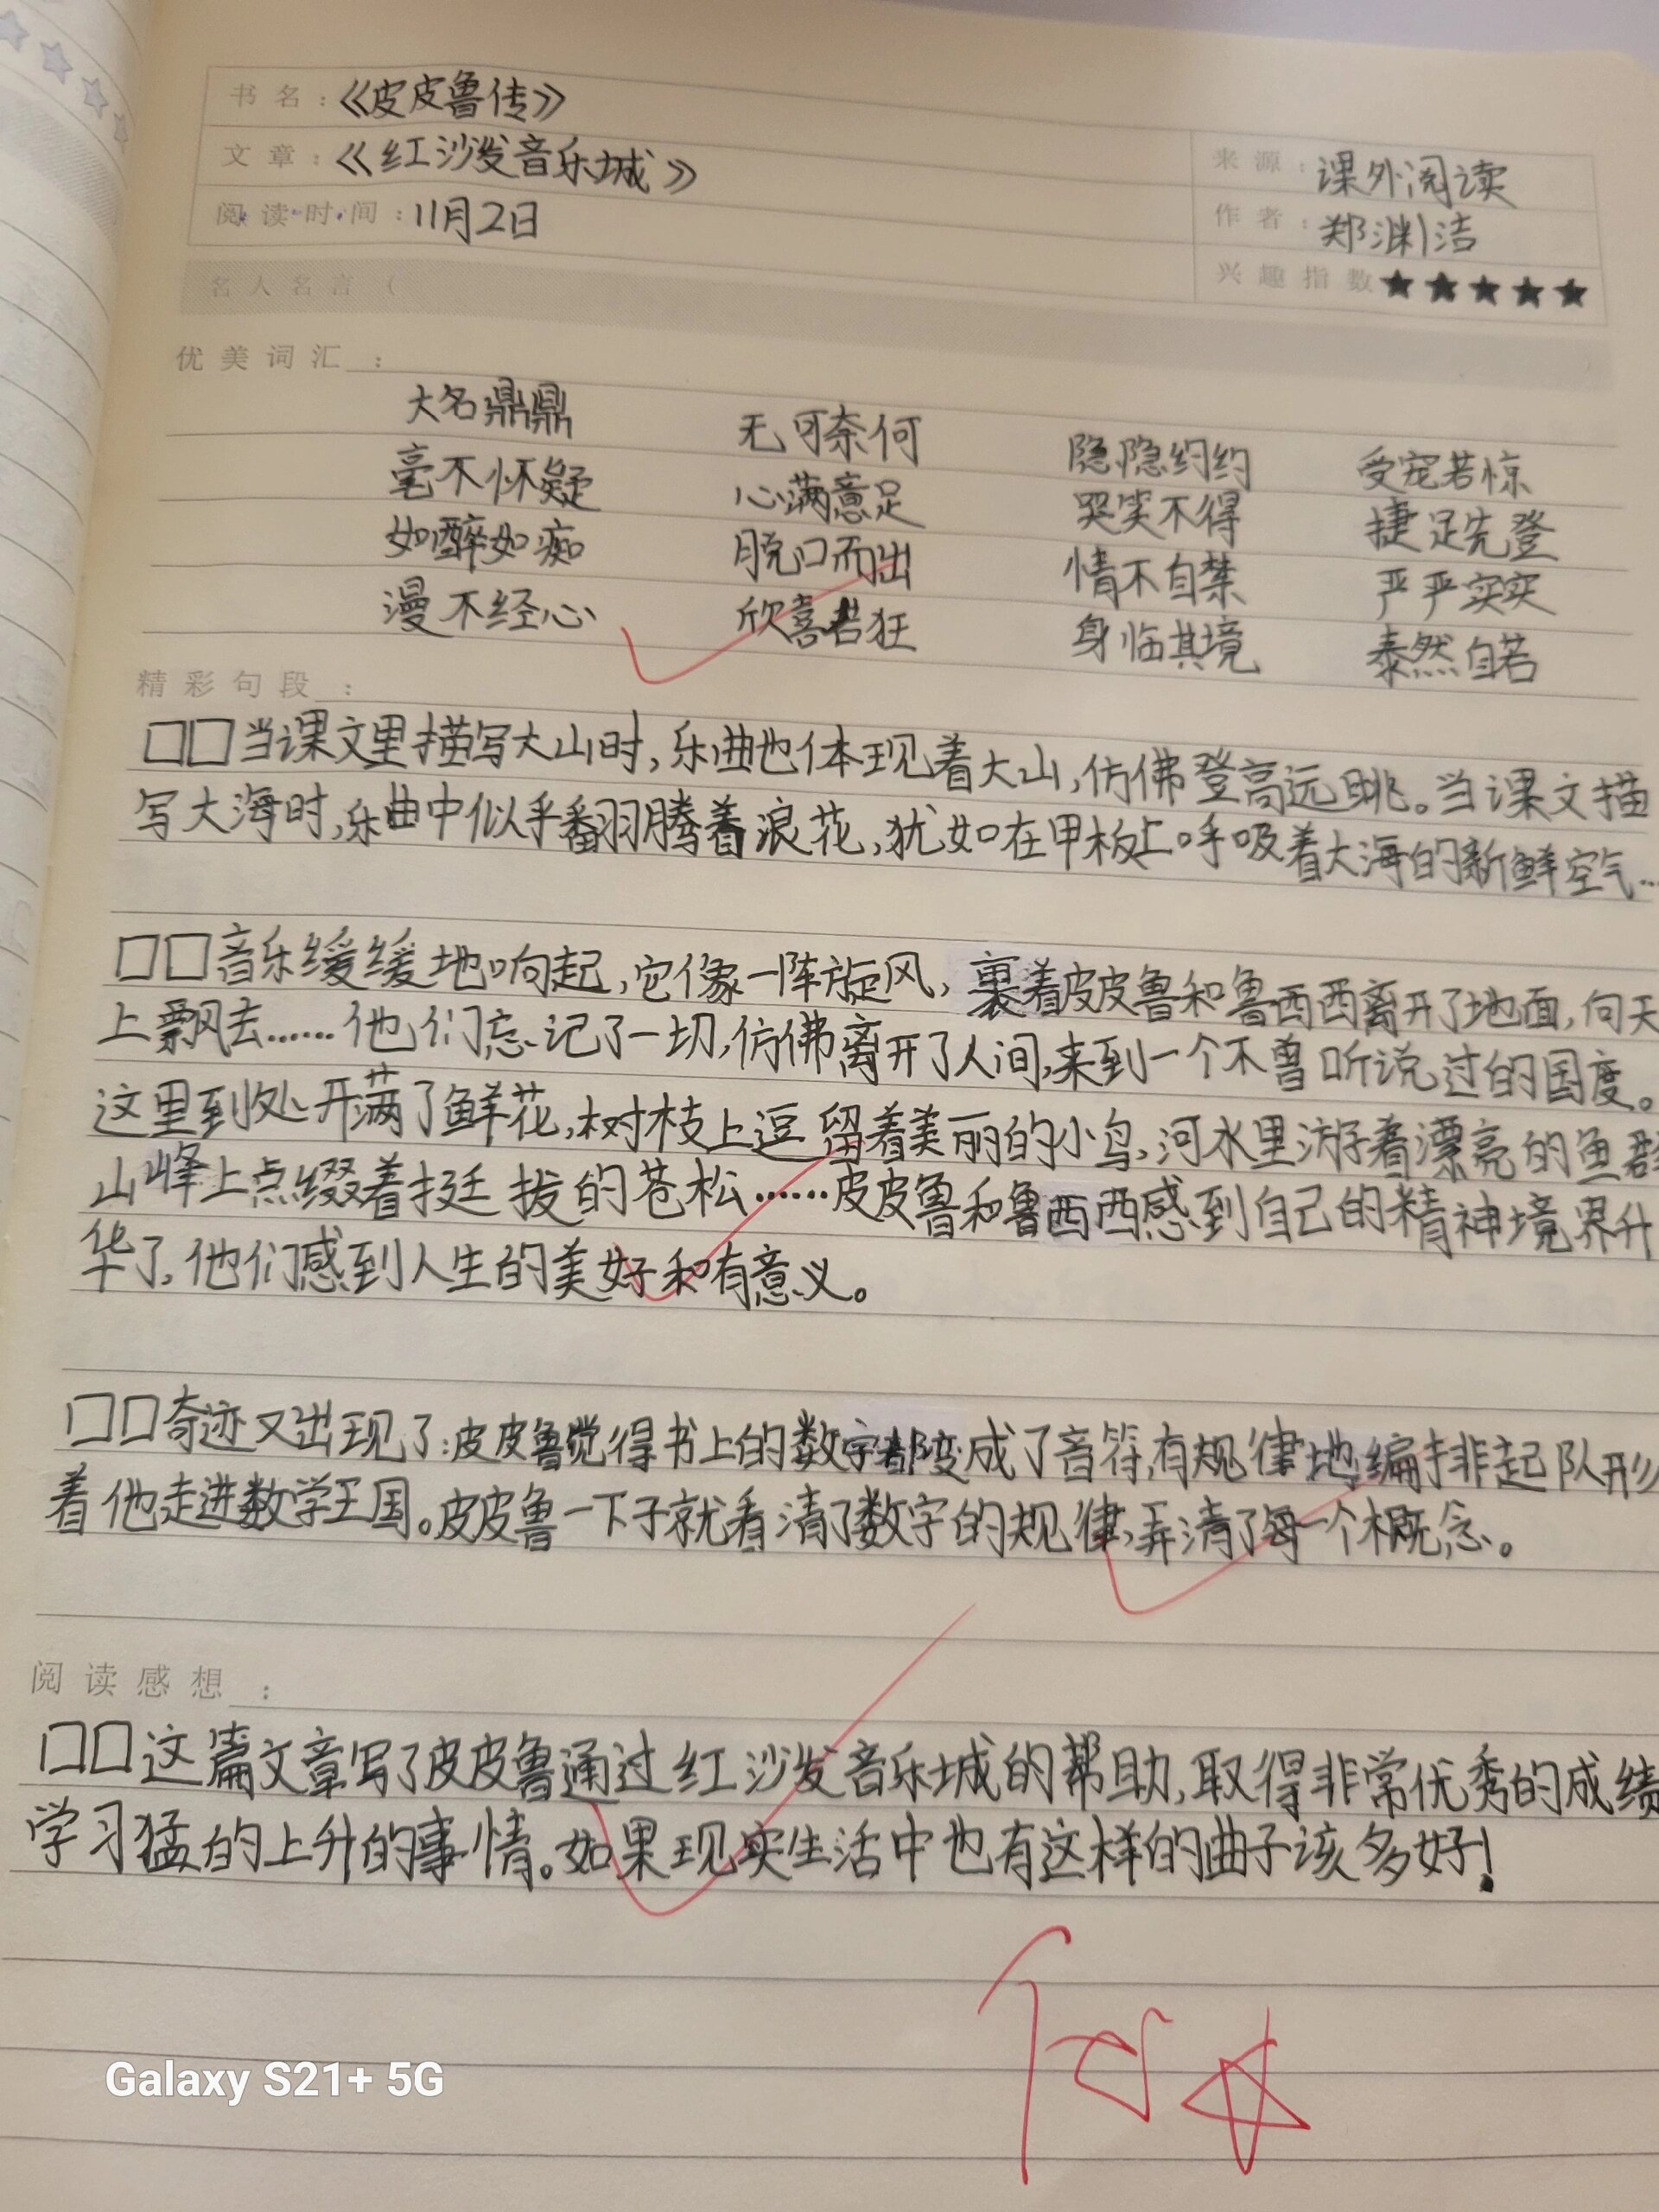 书名：《皮皮鲁传》
文章：《红沙发音乐城》
来源：课外阅读
阅读时间：11月2日
作者：郑渊洁
名人名言（
兴趣指数★★★★★
）
优美词汇：
大名鼎鼎 无可奈何 隐隐约约 受宠若惊
毫不怀疑 心满意足 哭笑不得 捷足先登
如醉如痴 脱口而出 情不自禁 严严实实
漫不经心 欣喜若狂 身临其境 泰然自若
精彩句段：
□□当课文里描写大山时,乐曲也体现着大山,仿佛登高远眺。当课文描
写大海时,乐曲中似乎翻腾着浪花,犹如在甲板上呼吸着大海的新鲜空气…
□□音乐缓缓地响起,它像一阵旋风,裹着皮皮鲁和鲁西西离开了地面,向天
上飘去……他们忘记了一切,仿佛离开了人间,来到一个不曾听说过的国度。
这里到处开满了鲜花,树枝上逗留着美丽的小鸟,河水里游着漂亮的鱼群
山峰上点缀着挺拔的苍松……皮皮鲁和鲁西西感到自己的精神境界升
华了,他们感到人生的美好和有意义。
□□奇迹又出现了:皮皮鲁觉得书上的数字都变成了音符,有规律地编排起队形
着他走进数学王国。皮皮鲁一下子就看清了数字的规律,弄清了每一个概念。
阅读感想：
□□这篇文章写了皮皮鲁通过红沙发音乐城的帮助,取得非常优秀的成绩
学习猛的上升的事情。如果现实生活中也有这样的曲子该多好!
优☆
Galaxy S21+ 5G